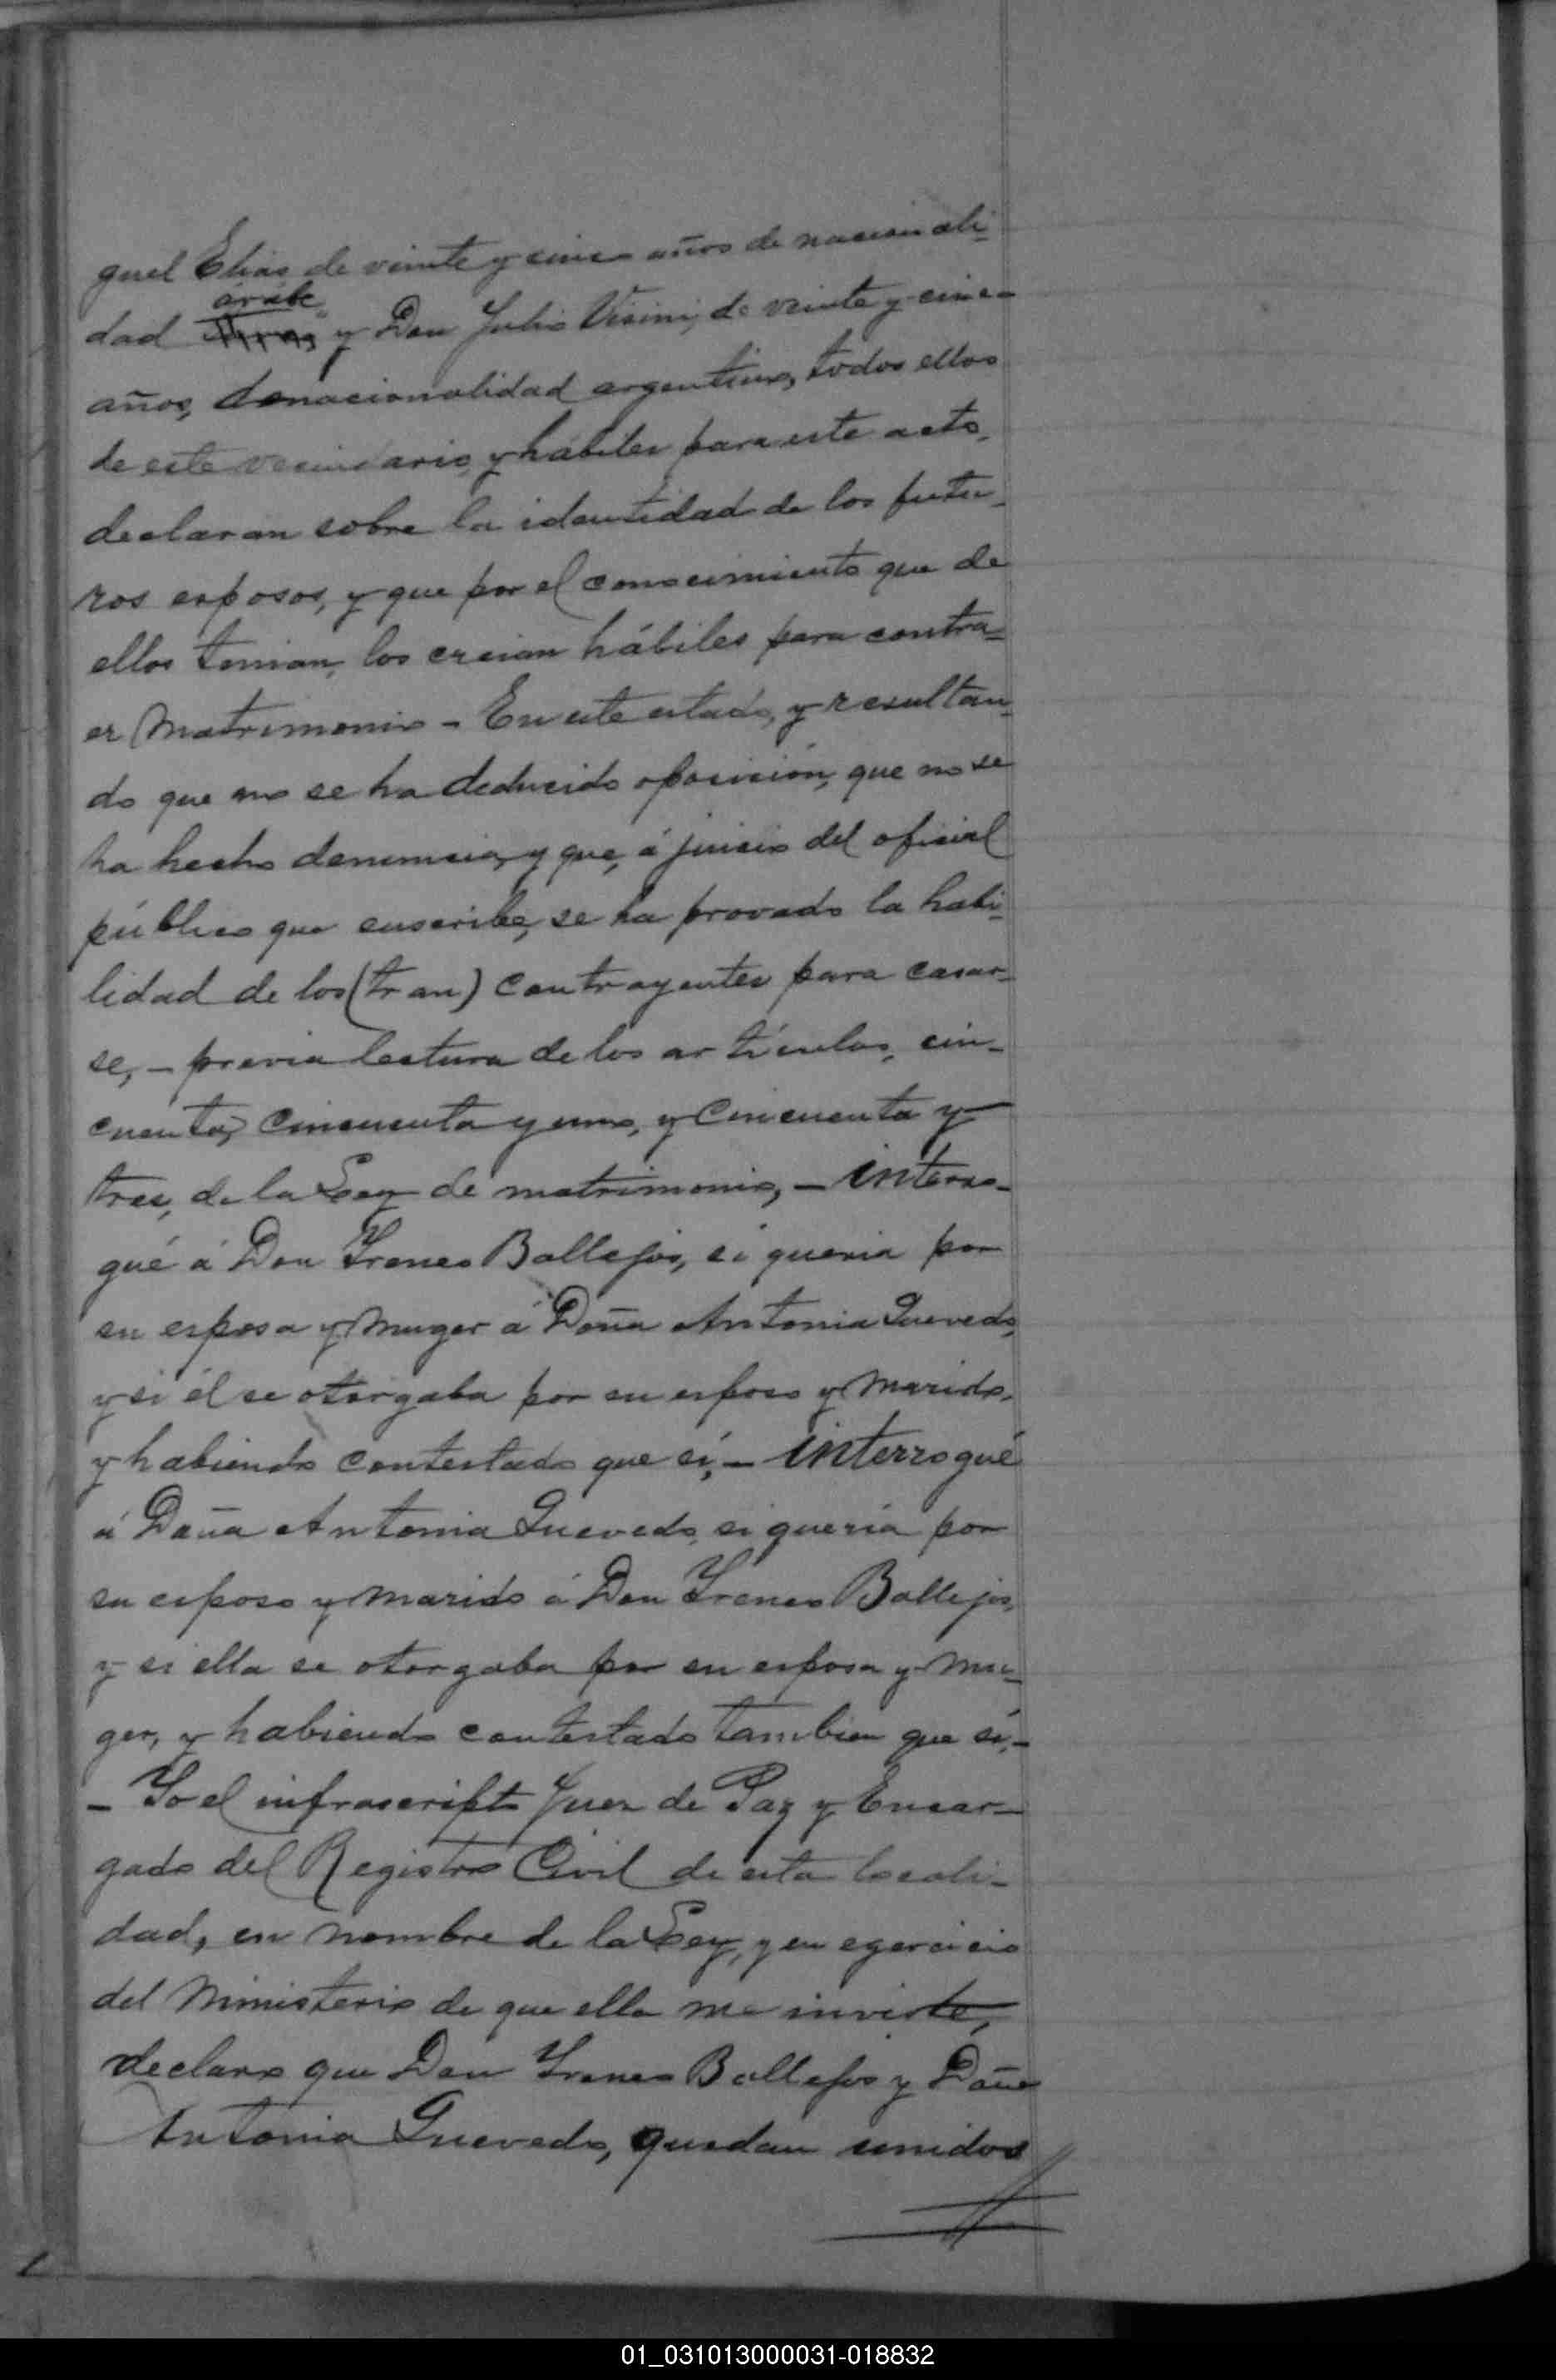 guel Elias de veinte y cinco años de nacionali-
árabe
dad y Don Julio Visini, de veinte y cinco
años, de nacionalidad argentino, todos ellos
de este vecindario, y hábiles para este acto,
declaran sobre la identidad de los futu-
ros esposos, y que por el conocimiento que de
ellos tenian, los creian hábiles para contra-
er Matrimonio - En este estado, y resultan-
do que no se ha deducido oposición, que no se
ha hecho denuncia, y que, á juicio del oficial
público que suscribe, se ha provado la habi-
lidad de los (tran) contrayentes para casar-
se, - previa lectura de los artículos, cin-
cuenta, cincuenta y uno, y cincuenta y
tres, de la Ley de matrimonio, - interro-
gué á Don Yreneo Ballejos, si queria por
su esposa y muger á Doña Antonia Quevedo,
y si él se otorgaba por su esposo y marido,
y habiendo contestado que sí, - interrogué
á Doña Antonia Quevedo, si queria por
su esposo y marido á Don Yreneo Ballejos,
y si ella se otorgaba por su esposa y mu-
ger, y habiendo contestado tambien que sí, -
- Yo el infrascripto Juez de Paz y Encar-
gado del Registro Civil de esta locali-
dad, en nombre de la Ley, y en egercicio
del Ministerio de que ella me inviste,
declaro que Don Yreneo Ballejos y Doña
Antonia Quevedo, quedan unidos
01_031013000031-018832